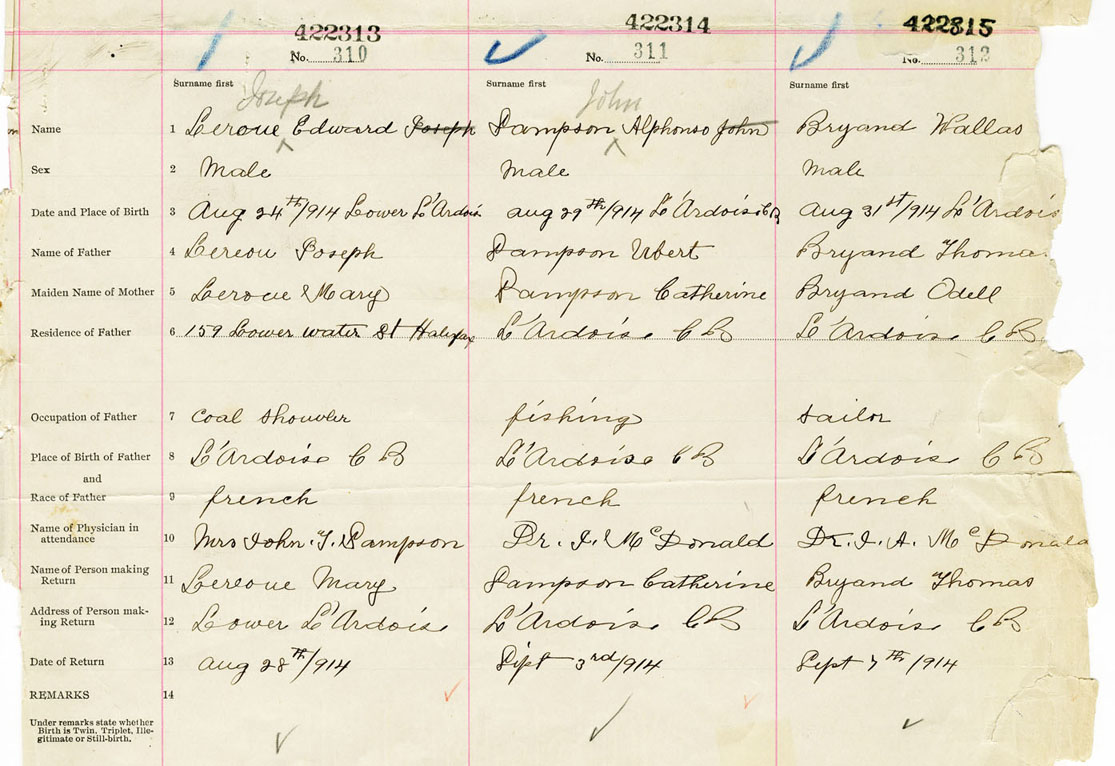 422313 422314 422315
No. 310 No. 311 No. 312
Surname first Surname first Surname first
Joseph John
Name 1 Leroue Edward Joseph Sampson Alphonso John Bryand Wallas
Sex 2 Male Male Male
Date and Place of Birth 3 Aug 24th/914 Lower L'Ardois Aug 29th/914 L'Ardois CB Aug 31st/914 L'Ardois
Name of Father 4 Lereou Joseph Sampson Ubert Bryand Thomas
Maiden Name of Mother 5 Leroue Mary Sampson Catherine Bryand Odell
Residence of Father 6 159 Lower water St Halifax L'Ardoise C B L'Ardoise C B
Occupation of Father 7 coal shouvler fishing sailor
Place of Birth of Father 8 L'Ardoise C B L'Ardoise C B L'Ardoise C B
and
Race of Father 9 french french french
Name of Physician in
attendance 10 Mrs John. T. Sampson Dr. I. McDonald Dr. I. A. McDonald
Name of Person making
Return 11 Lereoue Mary Sampson Catherine Bryand Thomas
Address of Person mak-
ing Return 12 Lower L'Ardoise L'Ardoise C B L'Ardoise C B
Date of Return 13 Aug 28th/914 Sipt 3rd/914 Sept 7th/914
REMARKS 14
Under remarks state whether
Birth is Twin. Triplet, Ille-
gitimate or Still-birth.